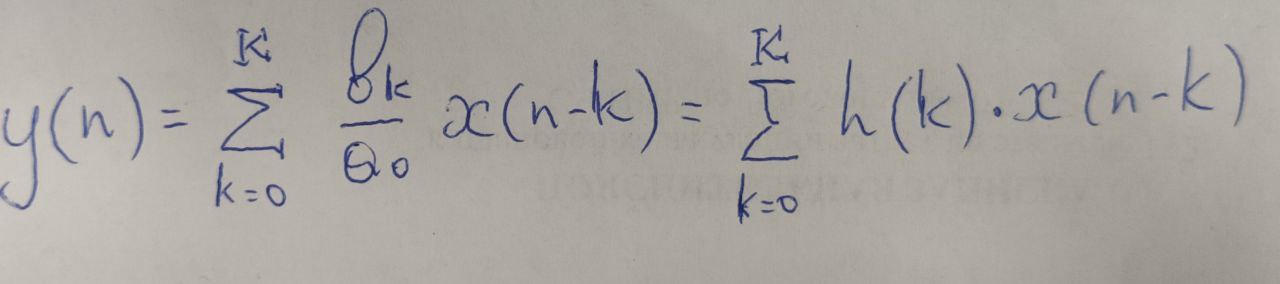 y(n) = \sum_{k=0}^{K} \frac{b_k}{a_0} x(n-k) = \sum_{k=0}^{K} h(k) \cdot x(n-k)